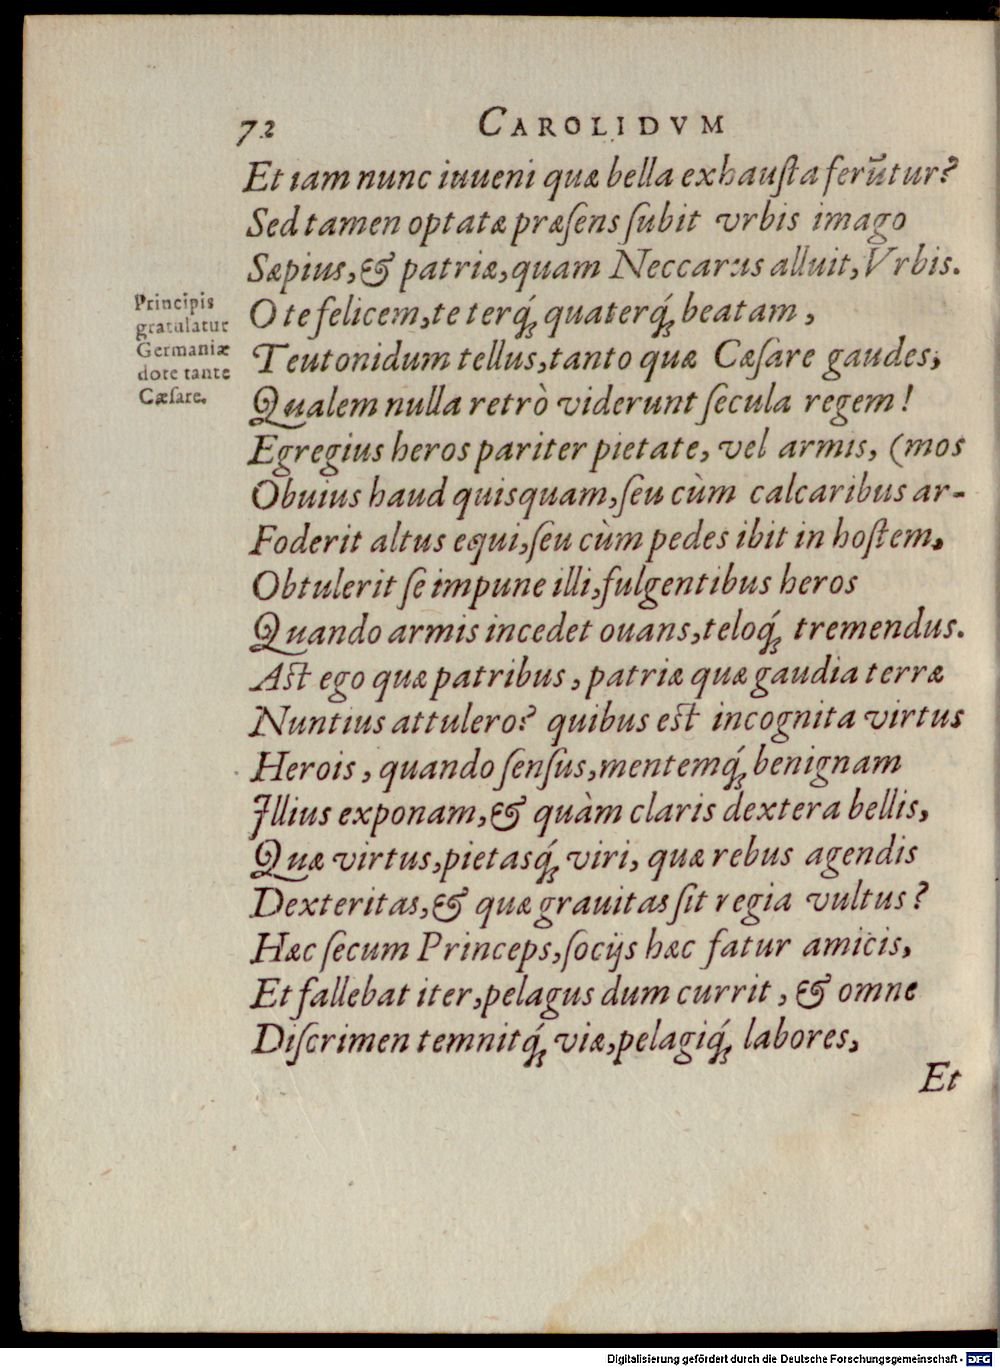 72 CAROLIDVM
Et iam nunc iuueni quæ bella exhausta ferũtur?
Sed tamen optatæ præsens subit vrbis imago
Sæpius, & patriæ, quam Neccarus alluit, Vrbis.
Principis
gratulatur
Germaniæ
dote tante
Cæsare.
O te felicem, te terq́; quaterq́; beatam,
Teutonidum tellus, tanto quæ Cæsare gaudes,
Qualem nulla retrò viderunt secula regem!
Egregius heros pariter pietate, vel armis, (mos
Obuius haud quisquam, seu cùm calcaribus ar-
Foderit altus equi, seu cùm pedes ibit in hostem,
Obtulerit se impune illi, fulgentibus heros
Quando armis incedet ouans, teloq́; tremendus.
Ast ego quæ patribus, patriæ quæ gaudia terræ
Nuntius attulero? quibus est incognita virtus
Herois, quando sensus, mentemq́; benignam
Illius exponam, & quàm claris dextera bellis,
Quæ virtus, pietasq́; viri, quæ rebus agendis
Dexteritas, & quæ grauitas sit regia vultus?
Hæc secum Princeps, socijs hæc fatur amicis,
Et fallebat iter, pelagus dum currit, & omne
Discrimen temnitq́; viæ, pelagiq́; labores,
Et
Digitalisierung gefördert durch die Deutsche Forschungsgemeinschaft - DFG